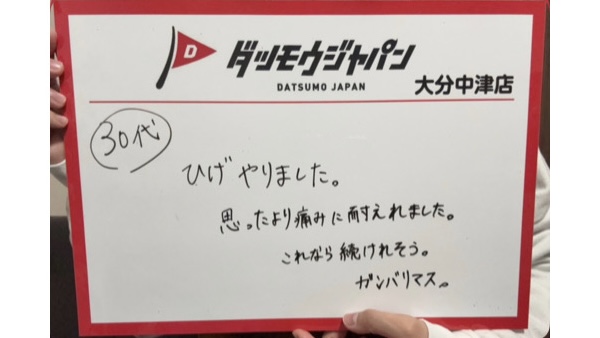 D
ダツモウジャパン
DATSUMO JAPAN
大分中津店
30代
ひげやりました。
思ったより痛みに耐えれました。
これなら続けれそう。
ガンバリマス。